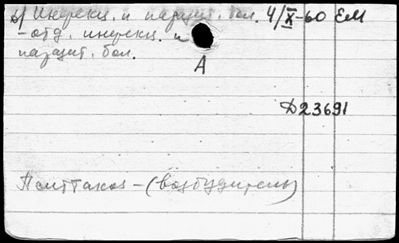 б) Инфекц. и паразит. бол. 4/X-60 ЕМ
-отд. инфекц. и
паразит. бол.
А
Д23691
Пситтакоз - (возбудитель)